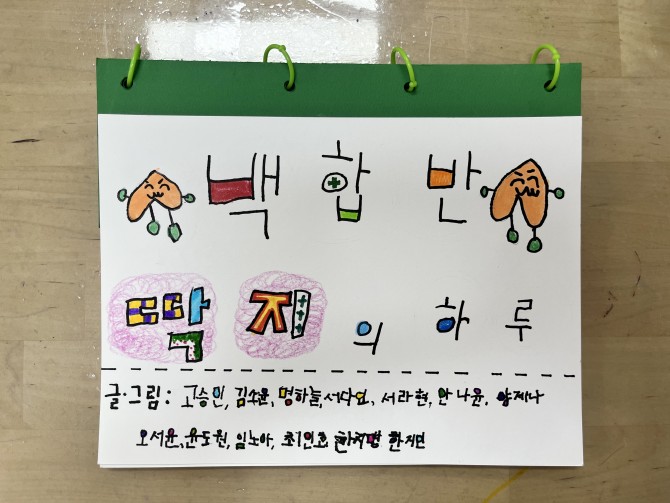 백합반
딱지의 하루
글·그림: 고승민, 김소윤, 명하늘, 서다인, 서라현, 안나윤, 양제나
오서윤, 윤도원, 임노아, 최인호, 한지민